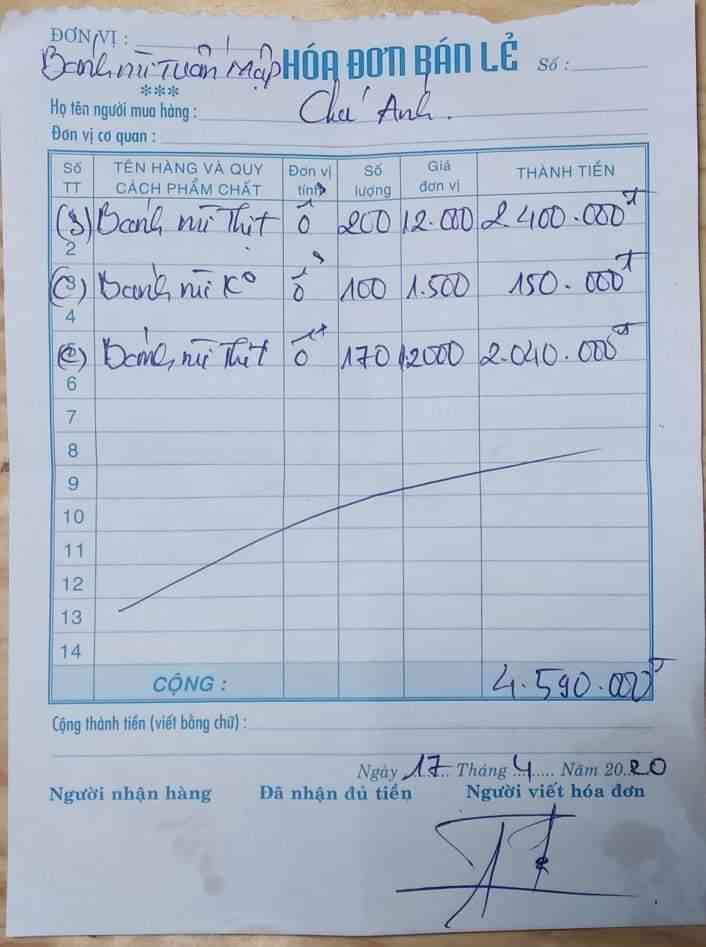 ĐƠN VỊ :
Bánh mì Tuấn Mập HÓA ĐƠN BÁN LẺ Số :
***
Họ tên người mua hàng : Chú Ánh.
Đơn vị cơ quan :
Số TT TÊN HÀNG VÀ QUY CÁCH PHẨM CHẤT Đơn vị tính Số lượng Giá đơn vị THÀNH TIỀN
(S) Bánh mì Thịt ổ 200 12.000 2.400.000đ
2
(C) Bánh mì Ko ổ 100 1.500 150.000đ
4
(C) Bánh mì Thịt ổ 170 12000 2.040.000đ
6
7
8
9
10
11
12
13
14
CỘNG : 4.590.000đ
Cộng thành tiền (viết bằng chữ) :
Ngày 17 Tháng 4 Năm 20.20
Người nhận hàng Đã nhận đủ tiền Người viết hóa đơn